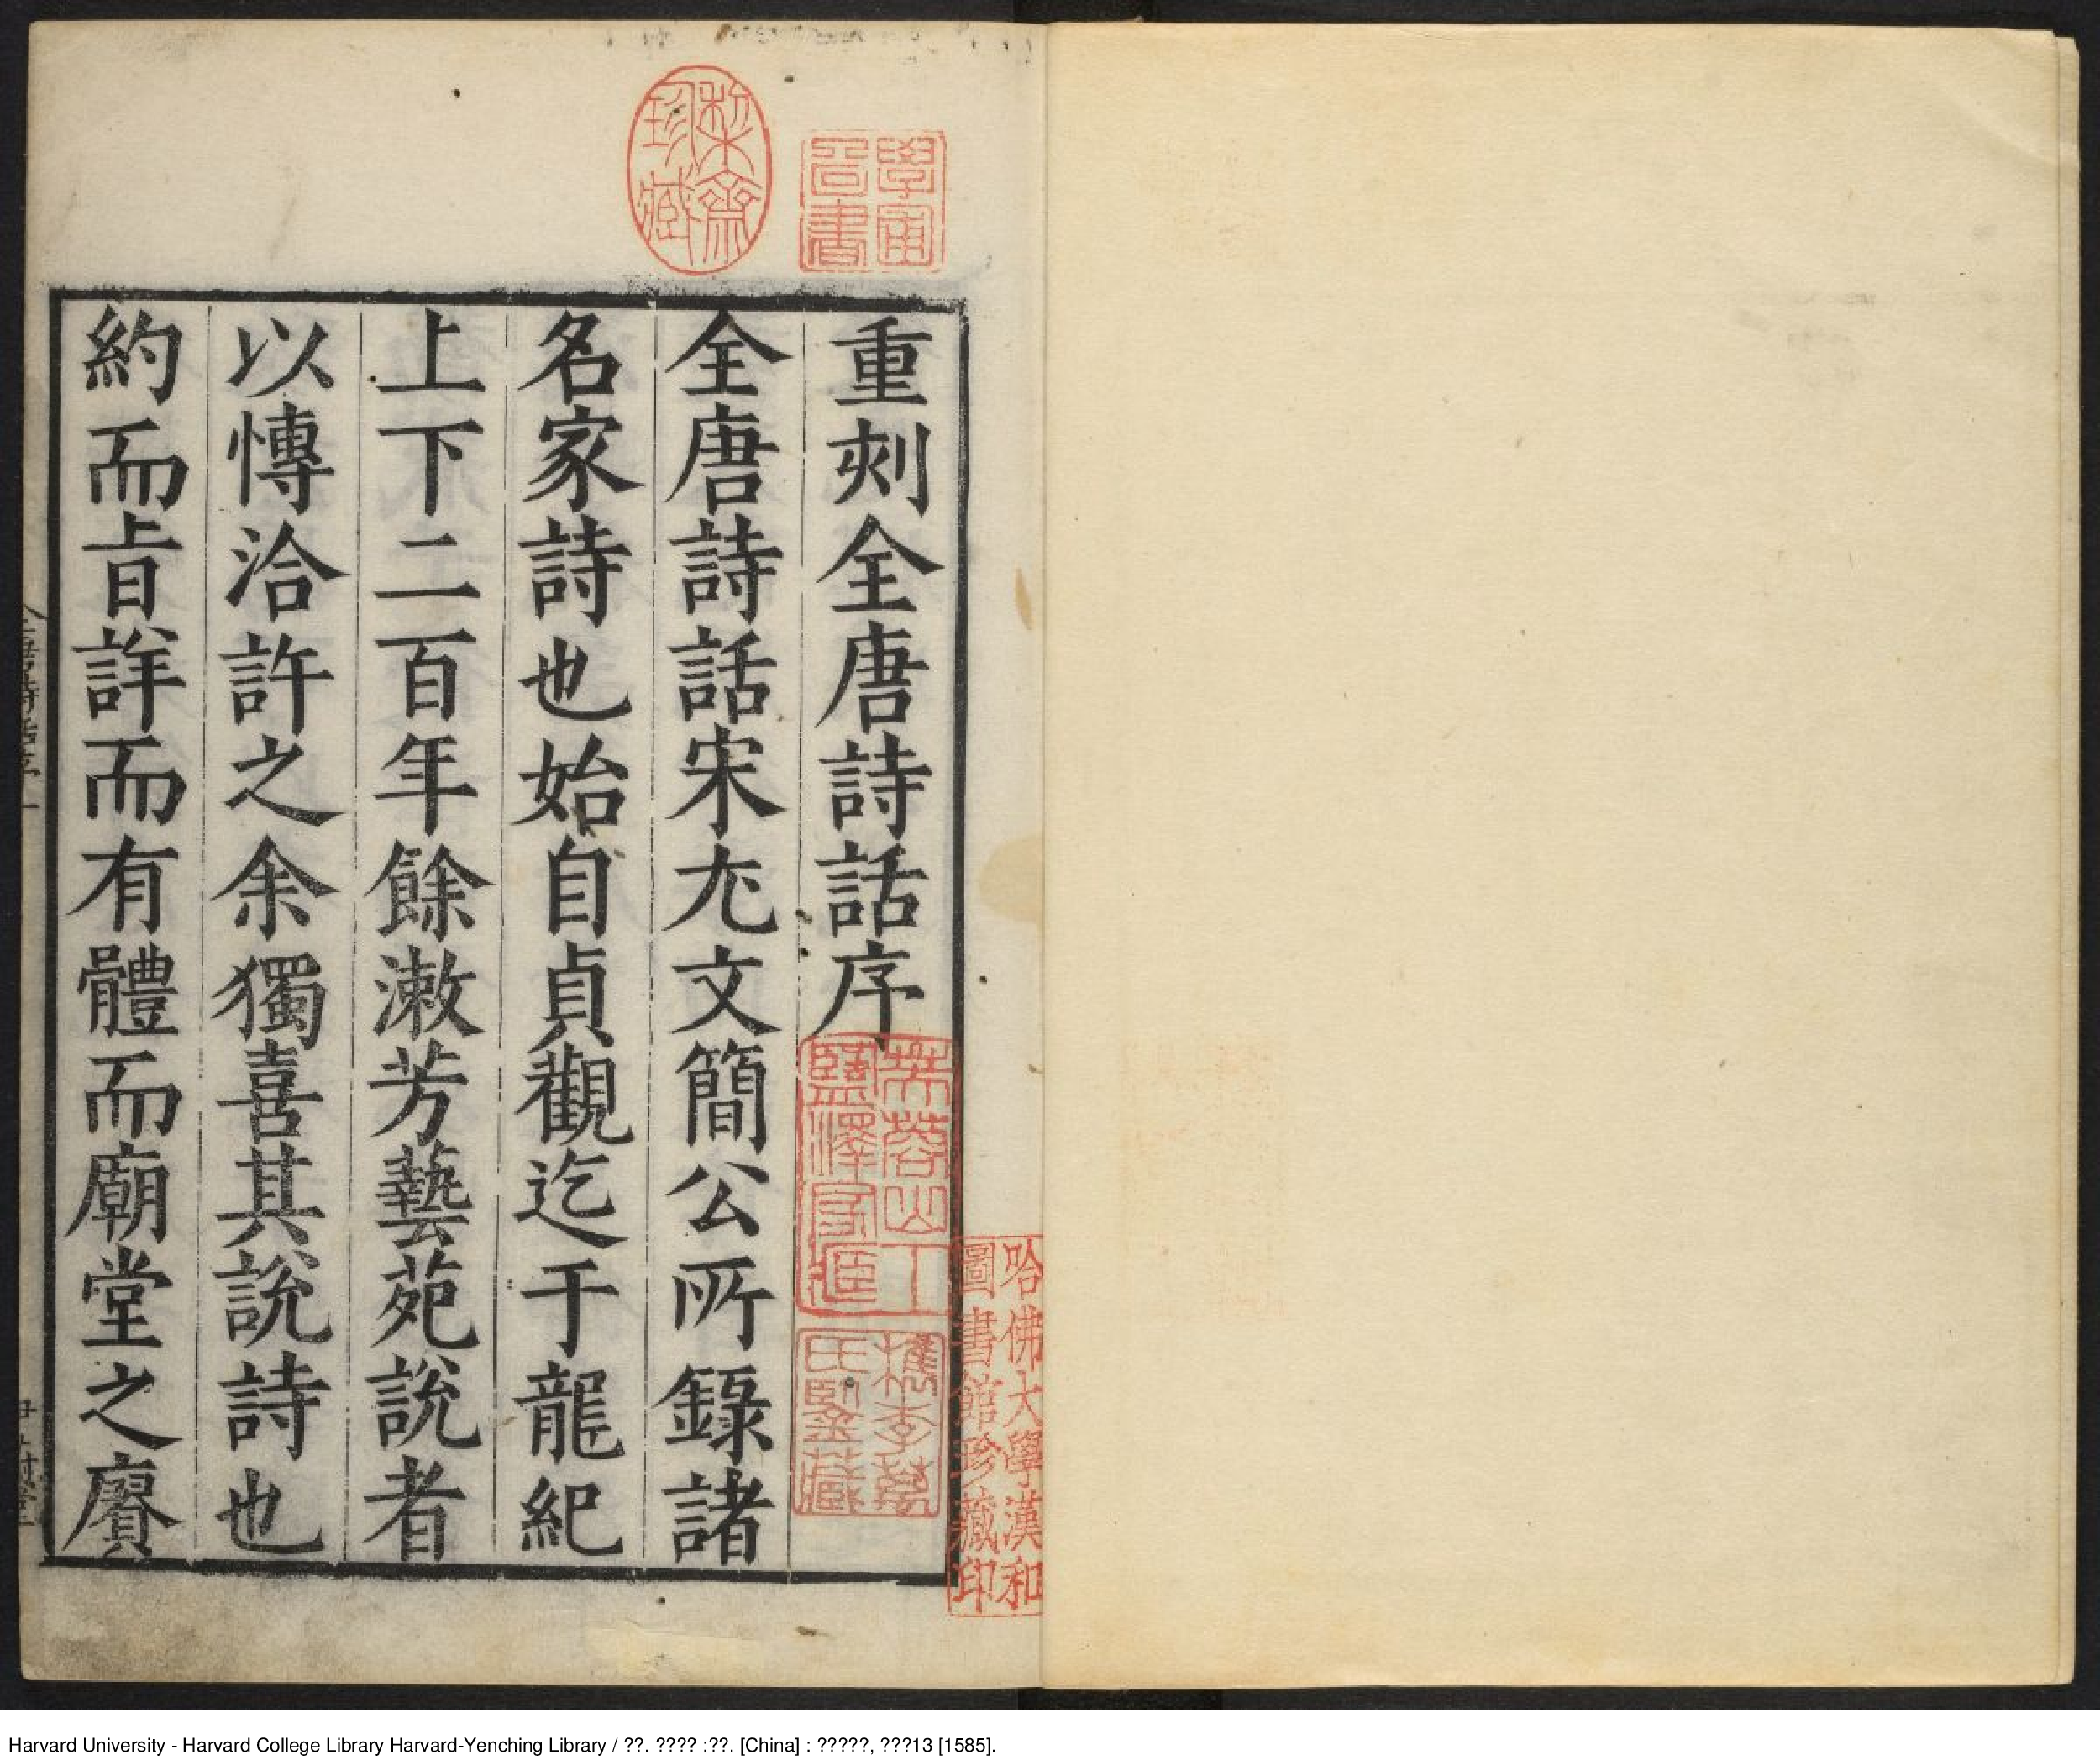 重刻全唐詩話序
全唐詩話宋尤文簡公所錄諸
名家詩也始自貞觀迄于龍紀
上下二百年餘漱芳藝苑說者
以愽洽許之余獨喜其說詩也
約而旨詳而有體而廟堂之賡
珍藏
芙蓉山丁
鹽澤家藏
檇李萬
氏監藏
哈佛大學漢和
圖書館珍藏印
Harvard University - Harvard College Library Harvard-Yenching Library / ??. ???? :??. [China] : ?????, ???13 [1585].